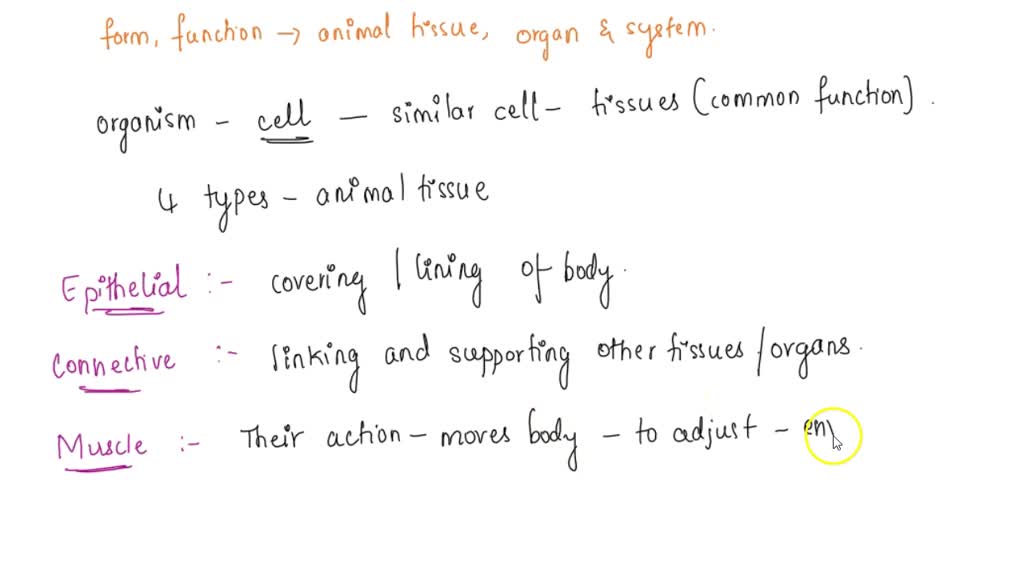 form, function → animal tissue, organ & system.
organism - cell - similar cell - tissues (common function).
4 types - animal tissue
Epithelial :- covering / lining of body.
Connective :- linking and supporting other tissues / organs.
Muscle :- Their action - moves body - to adjust - env